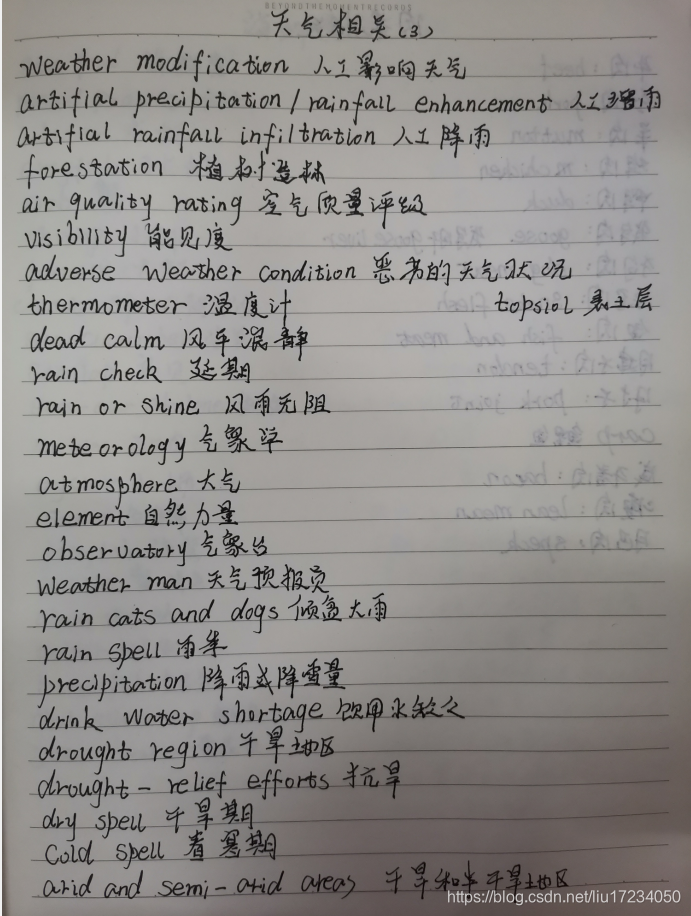 BEYONDTHEMOMENTRECORDS
天气相关(3)
weather modification 人工影响天气
artifial precipitation / rainfall enhancement 人工增雨
artifial rainfall infiltration 人工降雨
forestation 植树造林
air quality rating 空气质量评级
visibility 能见度
adverse weather condition 恶劣的天气状况
thermometer 温度计 topsiol 表土层
dead calm 风平浪静
rain check 延期
rain or shine 风雨无阻
meteorology 气象学
atmosphere 大气
element 自然力量
observatory 气象台
weather man 天气预报员
rain cats and dogs 倾盆大雨
rain spell 雨季
precipitation 降雨或降雪量
drink water shortage 饮用水缺乏
drought region 干旱地区
drought - relief efforts 抗旱
dry spell 干旱期
cold spell 春寒期
arid and semi - arid areas 干旱和半干旱地区
https://blog.csdn.net/liu17234050